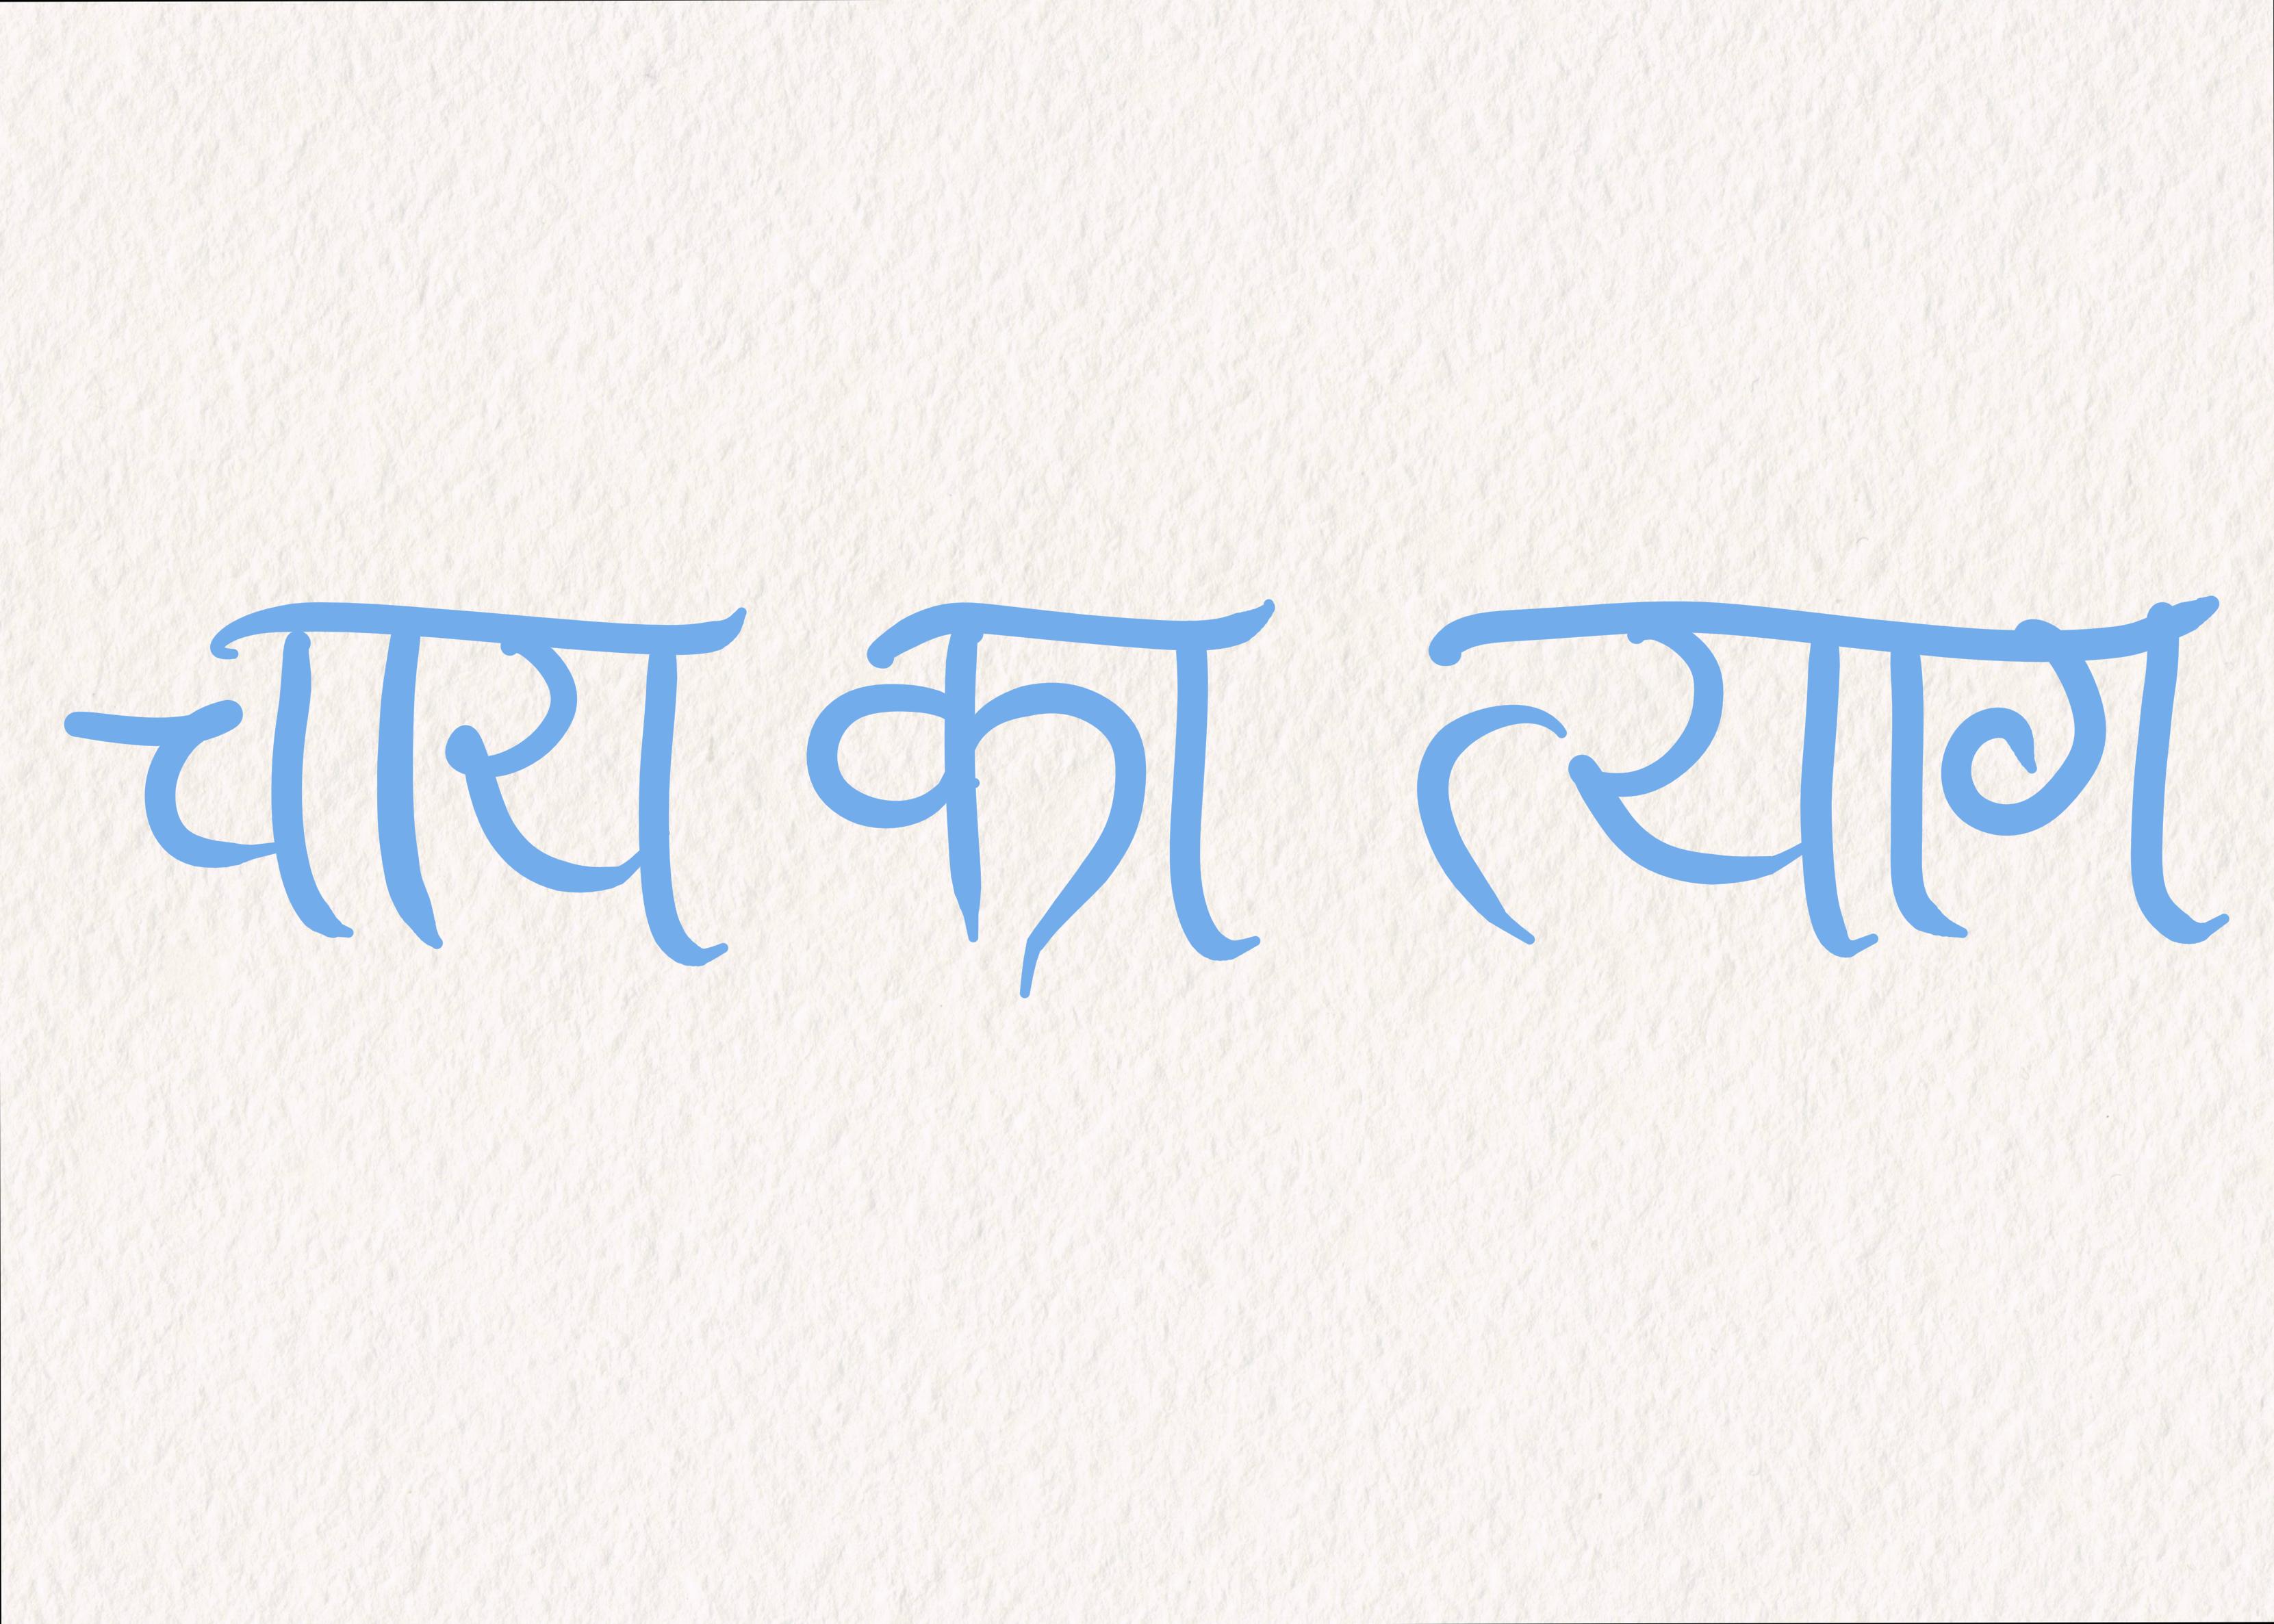 चाय का त्याग